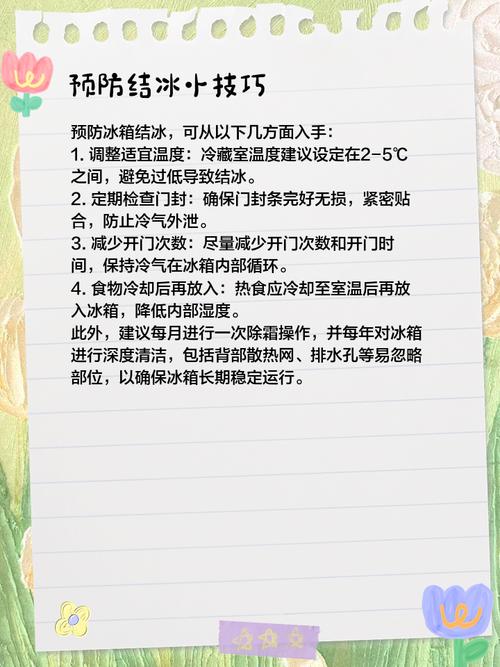 预防结冰小技巧
预防冰箱结冰，可从以下几方面入手：
1. 调整适宜温度：冷藏室温度建议设定在2-5℃
之间，避免过低导致结冰。
2. 定期检查门封：确保门封条完好无损，紧密贴
合，防止冷气外泄。
3. 减少开门次数：尽量减少开门次数和开门时
间，保持冷气在冰箱内部循环。
4. 食物冷却后再放入：热食应冷却至室温后再放
入冰箱，降低内部湿度。
此外，建议每月进行一次除霜操作，并每年对冰箱
进行深度清洁，包括背部散热网、排水孔等易忽略
部位，以确保冰箱长期稳定运行。